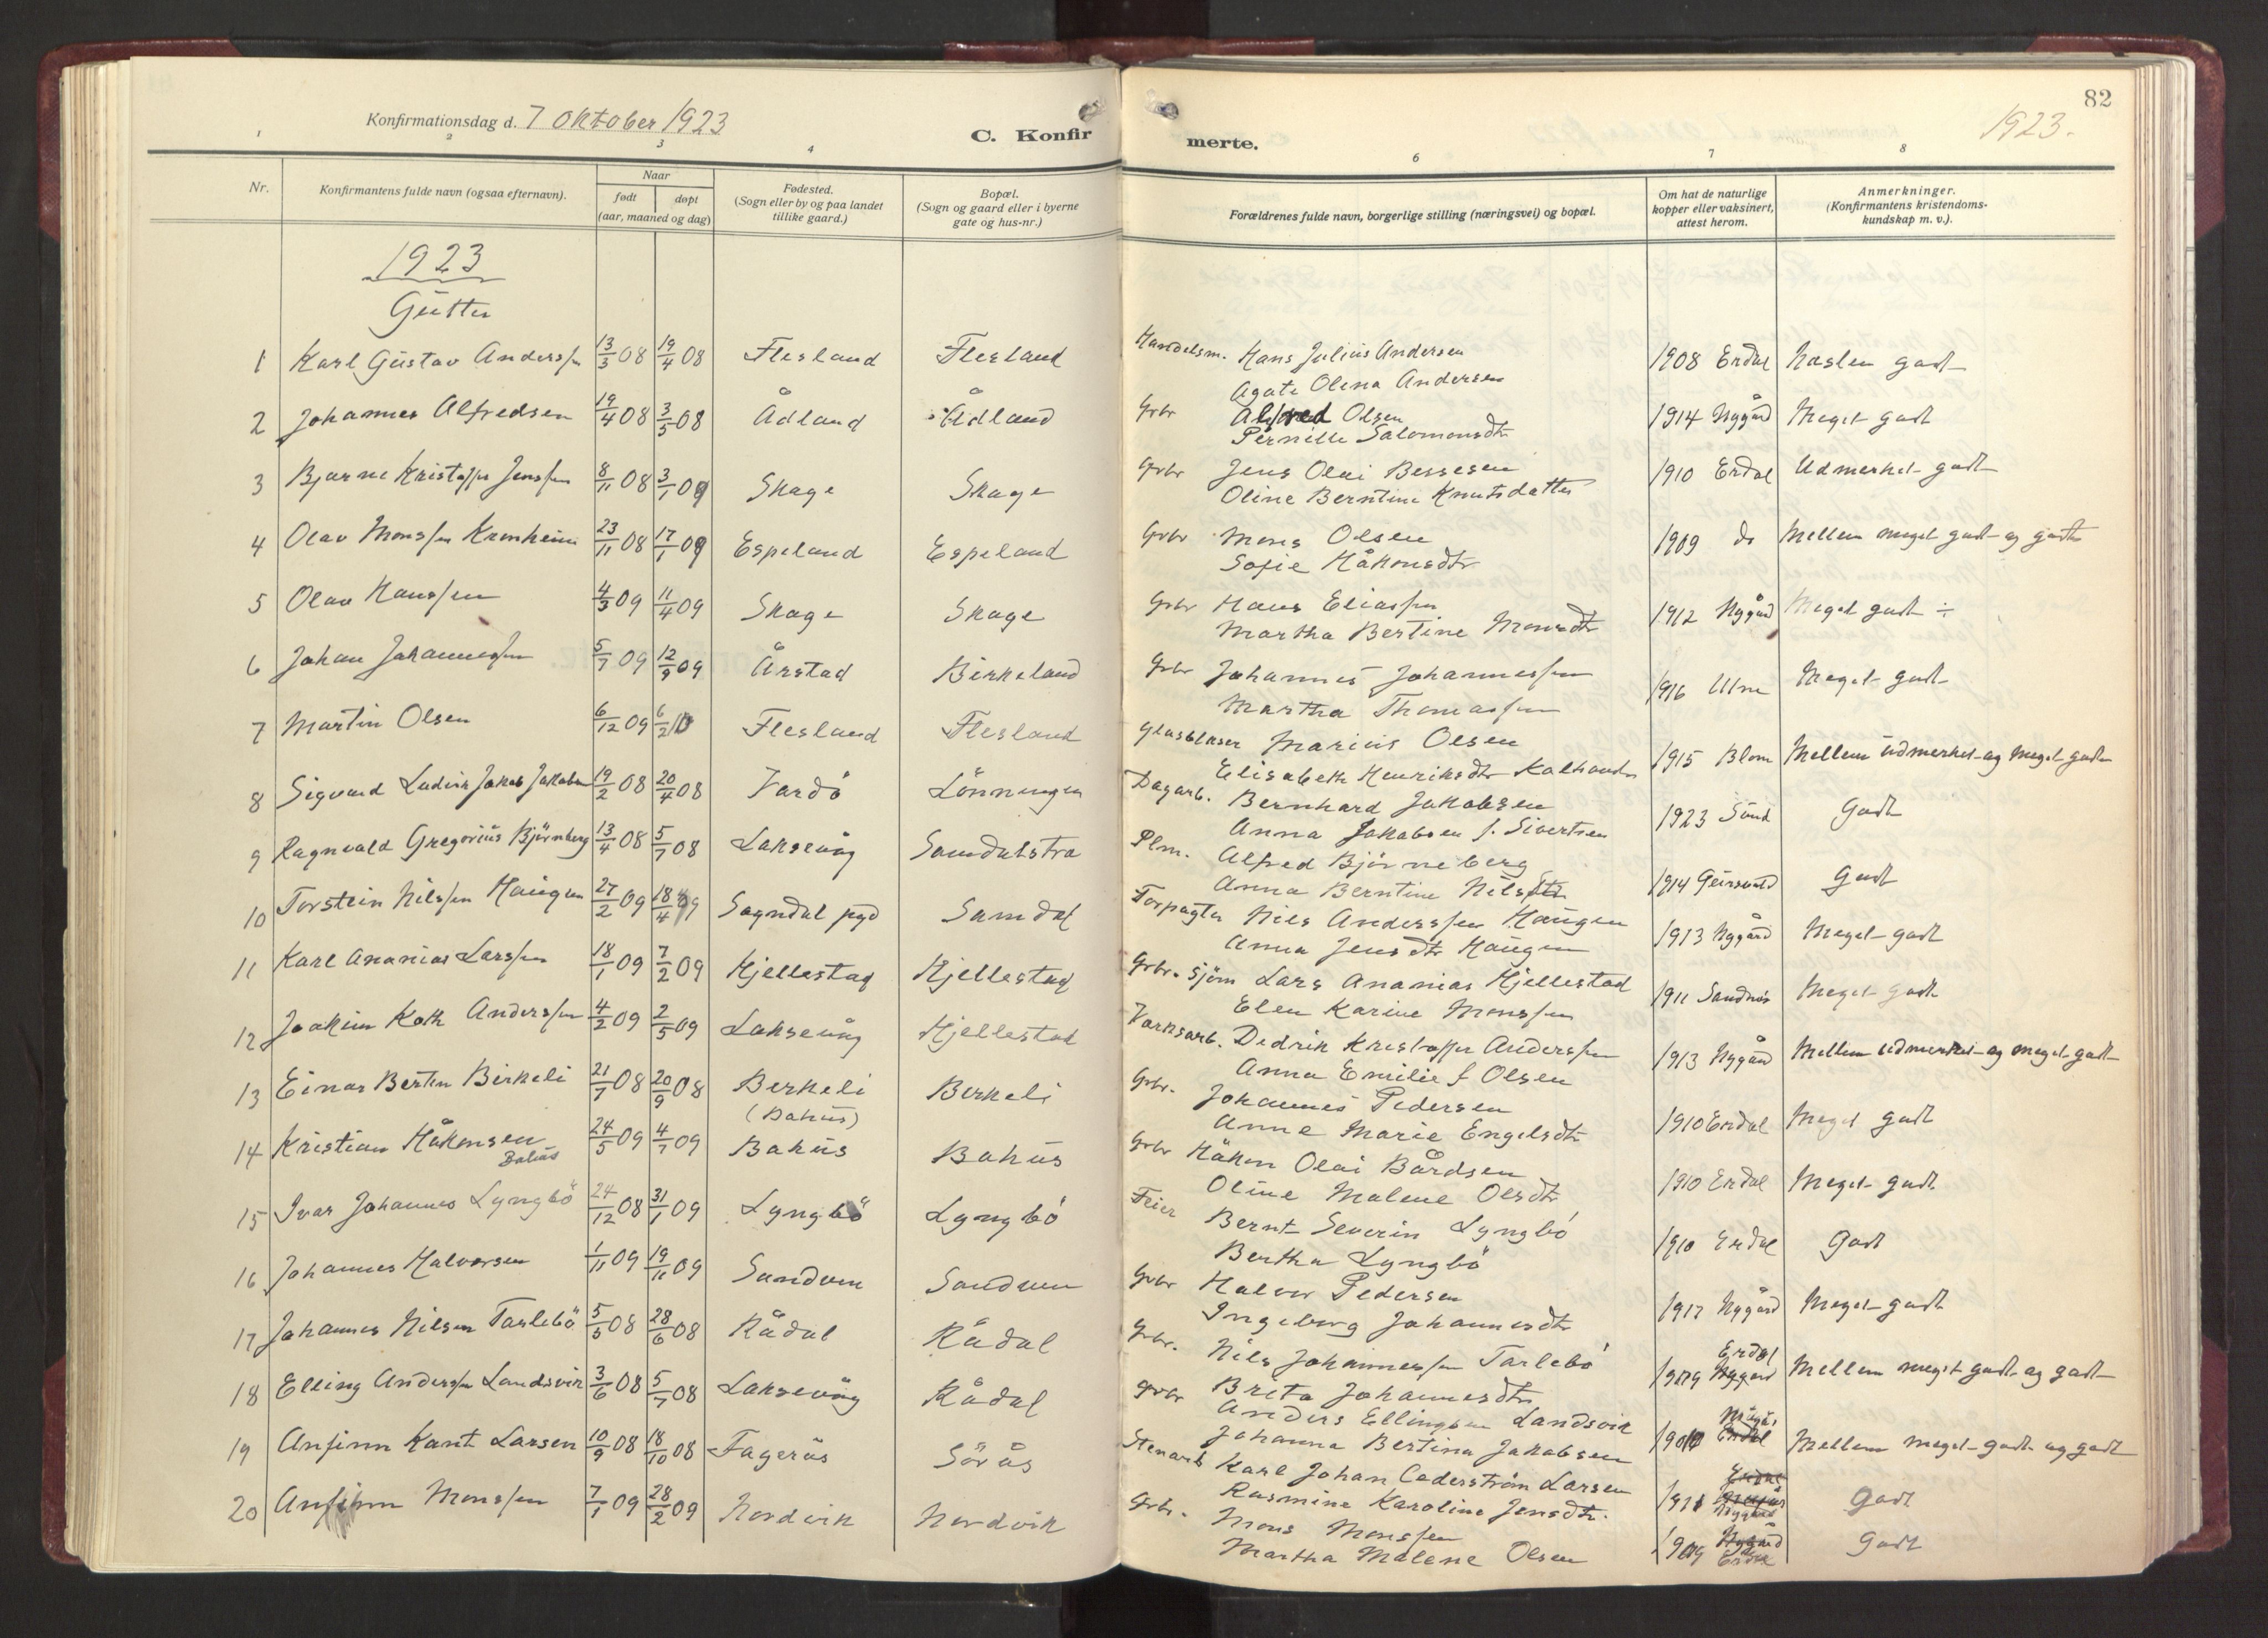 82
Konfirmationsdag d. 7 Oktober 1923
C. Konfirmerte.
1923.
1 2 3 4 6 7 8
Nr.
Konfirmantens fulde navn (ogsaa efternavn).
Naar
født døpt
(aar, maaned og dag)
Fødested.
(Sogn eller by og paa landet
tillike gaard.)
Bopæl.
(Sogn og gaard eller i byerne
gate og hus-nr.)
Forældrenes fulde navn, borgerlige stilling (næringsvei) og bopæl.
Om hat de naturlige
kopper eller vaksinert,
attest herom.
Anmerkninger.
(Konfirmantens kristendoms-
kundskap m. v.).
1923
Gutter
1 Karl Gustav Anderssen 13/3 08 19/4 08 Flesland Flesland Handelsm. Hans Julius Andersen 1908 Erdal Næsten godt
Agate Olina Andersen
2 Johannes Alfredsen 19/4 08 3/5 08 Ådland Ådland Grbr Alfred Olsen 1914 Nygård Meget godt
Pernille Salomonsdtr
3 Bjarne Kristoffer Jenssen 8/11 08 3/1 09 Skage Skage Grbr Jens Olai Bessesen 1910 Erdal Udmerket godt
Oline Berntine Knutsdatter
4 Olav Monssen Kremheim 23/11 08 17/1 09 Espeland Espeland Grbr Mons Olsen 1909 do Mellem meget godt og godt
Sofie Håkonsdtr
5 Olav Hanssen 4/3 09 11/4 09 Skage Skage Grbr Hans Eliassen 1912 Nygård Meget godt ÷
Martha Bertine Monsdtr
6 Johan Johannessen 5/7 09 12/9 09 Årstad Birkeland Grbr Johannes Johannessen 1916 Meget godt
Martha Thomassen
7 Martin Olsen 6/12 09 6/2 10 Flesland Flesland Glasblåser Marius Olsen 1915 Blom Mellem udmerket og meget godt
Elisabeth Henriksdtr
8 Sigvard Ludvik Jakob Jakobsen 19/2 08 20/4 08 Vardö Lönningen Dagarb. Bernhard Jakobsen 1923 Sund Godt
Anna Jakobsen f. Sivertsen
9 Ragnvald Gregorius Björneberg 13/4 08 5/7 08 Laksevåg Samdalstra Plm. Alfred Björneberg 1914 Godt
Anna Berntine Nilsdtr
10 Torstein Nilssen Haugen 27/2 09 18/4 09 Sogndal pgd Samdal Forpagter Nils Anderssen Haugen 1913 Nygård Meget godt
Anna Jensdtr Haugen
11 Karl Ananias Larssen 18/1 09 7/2 09 Hjellestad Hjellestad Grbr. sjöm Lars Ananias Hjellestad 1911 Sandnes Meget godt
Elen Karine Monssen
12 Joakim Koth Anderssen 4/2 09 2/5 09 Laksevåg Hjellestad Varksarb. Dedrik Kristoffer Anderssen 1913 Nygård Mellem udmerket og meget godt
Anna Emilie f Olsen
13 Einar Berten Birkeli 21/7 08 20/9 08 Berkeli Berkeli Grbr. Johannes Pedersen 1910 Erdal Meget godt
(Bahus)
Anne Marie Engelsdtr
14 Kristian Håkonsen 24/5 09 4/7 09 Bahus Bahus Grbr Håkon Olai Bårdsen 1910 Erdal Meget godt
Bahus
Oline Malene Olsdtr
15 Ivar Johannes Lyngbö 24/12 08 31/1 09 Lyngbö Lyngbö Feier Bernt Severin Lyngbö 1910 Erdal Godt
Bertha Lyngbö
16 Johannes Halvorsen 1/11 09 19/11 09 Sandven Sandven Grbr Halvor Pedersen 1917 Nygård Meget godt
Ingeborg Johannesdtr
17 Johannes Nilsen Tarlebö 5/5 08 28/6 08 Rådal Rådal Grbr. Nils Johannessen Tarlebö Erdal Nygård Mellem meget godt og godt
Breta Johannesdtr
18 Elling Anderssen Landsvik 3/6 08 5/7 08 Laksevåg Rådal Grbr Anders Ellingsen Landsvik Erdal Mellem meget godt og godt
Johanna Bertina Jakobsen
19 Anfinn Kant Larsen 10/9 08 18/10 08 Fagerås Sörås Stenarb Karl Johan Cederström Larsen Godt
Rasmine Karoline Jensdtr.
20 Anfinn Monssen 7/1 09 28/2 09 Nordvik Nordvik Grbr. Mons Monssen 1909 Nygård Erdal Godt
Martha Malene Olsen